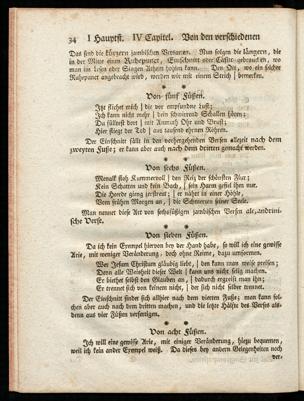 34 I Hauptst. IV Capitel. Von den verschiedenen
Das sind die kürzern jambischen Versarten. Nun folgen die längern, die
in der Mitte einen Ruhepunct, Einschnitt oder Cäsur gebrauchen, wo
man im Lesen oder Singen Athem holen kann. Den Ort, wo ein solcher
Ruhepunct angebracht wird, werden wir mit einem Strich | bemerken.
Von fünf Füßen.
Itzt fliehet mich | die vor empfundne Lust;
Ich kann nicht mehr | dein schwirrend Schallen hören;
Du füllest dort | mit Anmuth Ohr und Brust;
Hier stieg der Tod | aus tausend ehrnen Röhren.
Der Einschnitt fällt in den vorhergehenden Versen allezeit nach dem
zweyten Fuße; er kann aber auch nach dem dritten gemacht werden.
Von sechs Füßen.
Menalk floh Kummervoll | den Reiz der schönsten Flur;
Kein Schatten und kein Bach, | sein Harm gefiel ihm nur.
Die Heerde gieng zerstreut; | er nährt in einer Höhle,
Vom frühen Morgen an, | die Schmerzen seiner Seele.
Man nennet diese Art von sechsfüßigen jambischen Versen alexandrini-
sche Verse.
Von sieben Füßen.
Da ich kein Exempel hiervon bey der Hand habe, so will ich eine gewisse
Arie, mit weniger Veränderung, doch ohne Reime, dazu umformen.
Wer Jesum Christum gläubig liebt, | den kann man weise preisen;
Denn alle Weisheit dieser Welt | kann uns nicht selig machen.
Er bethet selbst den Glauben an, | dadurch ergreift man ihn;
Er trennet sich von keinem nicht, | der sich nicht selber trennet.
Der Einschnitt findet sich allhier nach dem vierten Fuße; man kann sol-
chen aber auch nach dem dritten machen, und die letzte Hälfte des Verses als-
denn aus vier Füßen verfertigen.
Von acht Füßen.
Ich will eine gewisse Arie, mit einiger Veränderung, hiezu bequemen,
weil ich kein ander Exempel weiß. Da dieses bey andern Gelegenheiten noch
ver-